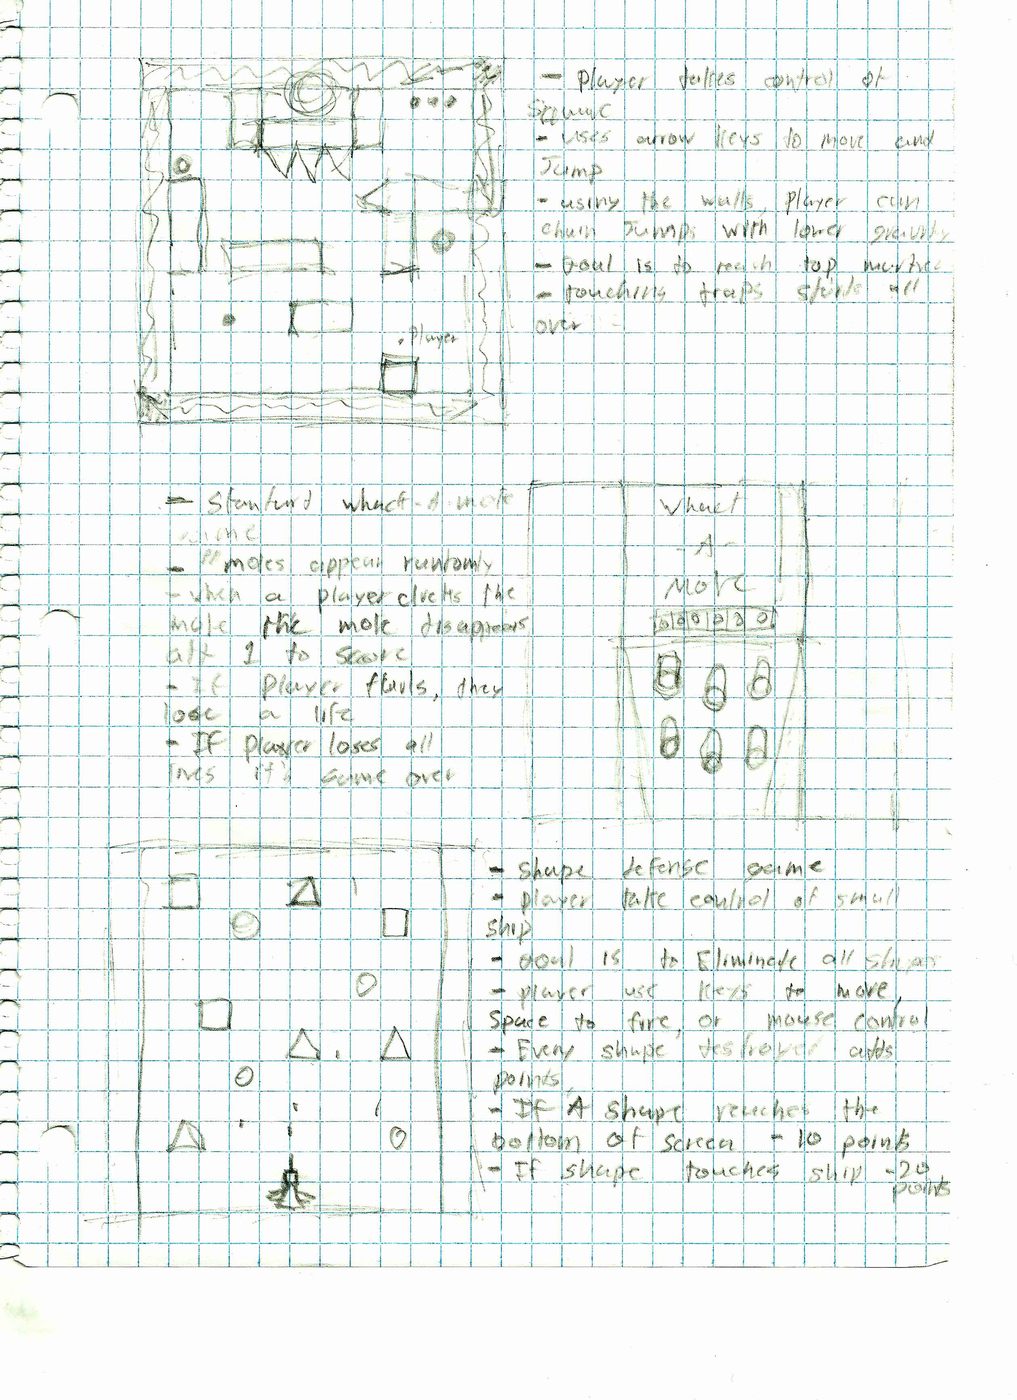 - Player takes control of
Square
- uses arrow keys to move and
Jump
- using the walls, player can
chain Jumps with lower gravity
- Goal is to reach top
- touching traps starts all
over
. Player
- Standard whack-A-mole
game
- moles appear randomly
- when a player clicks the
mole the mole disappears
add 1 to score
- If player fails, they
lose a life
- If player loses all
lives it's game over
Whack
- A -
Mole
- shape defense game
- player take control of small
ship
- Goal is to Eliminate all shapes
- player use keys to move,
Space to fire, or mouse control
- Every shape destroyed adds
points,
- If A shape reaches the
bottom of screen - 10 points
- If shape touches ship -20
points